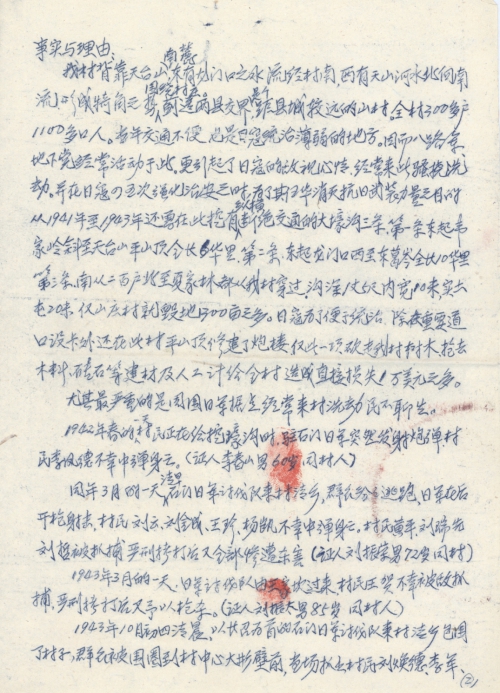 事实与理由:
南麓
我村背靠天台山, 东有龙门口之水流经村南西有天山河水北向南
流, 形成犄角之势, 到达两县交界是距县城较远的山村。全村300多户
1100多口人。当年交通不便, 也是日寇统治薄弱的地方。因而八路军、
地下党经常活动于此。更引起了日寇的敌视心情, 经常来此骚扰洗
劫。并在日寇五次强化治安之时, 为了其消灭抗日武装力量之目的
从1941年至1943年还曾在此挖有断绝交通的大壕沟三条。第一条东起
至天台山平山顶全长5华里。第二条, 东起龙门口西至东葛岑全长10华里
第三条, 南从二百户北至夏家林都从我村穿过, 沟深1丈以内宽10来,
20米, 仅山左村就毁地1300亩之多。日寇为了便于统治, 除在重要道
口设卡外还在此村平山顶修建了炮楼, 仅此一项砍去我村树木、抢去
木料、砖石等建材及人工计给全村造成直接损失1万美元之多。
尤其最严重的是周围日军据点, 经常来村洗劫民不聊生。
1942年春的村民正在给挖壕沟时, 驻石门日军突然发射炮弹村
民李凤德不幸中弹身亡。(证人李春山男60岁同村人)
同年3月的一天清早石门日军讨伐队来村清乡, 群众纷纷逃跑, 日军在后
开枪射击, 村民刘云、刘金成、王珍、杨凯不幸中弹身亡。村民黄车、刘瑞先
刘哲被抓捕严刑拷打后又全部惨遭杀害 (证人刘振学男72岁同村)
1943年3月的一天, 日军讨伐队由坎过来, 村民王贺不幸被敌抓
捕, 严刑拷打后又予以枪杀。(证人刘振杰男85岁 同村人)
1943年10月初四清晨, 以廿召为首的石门日军讨伐队来村清乡包围
了村子, 群众被围圈到村中心大影壁前, 当场抓出村民刘焕德、李军、
②